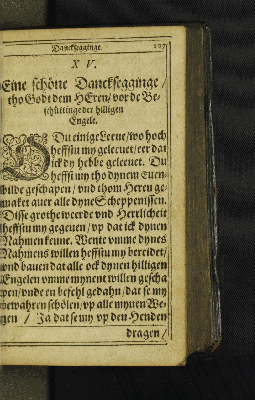 Danckſegginge. 107
X V.
Eine ſchöne Danckſegginge /
tho Godt dem HEren / vor de Be-
ſchüttinge der hilligen
Engele.
O Du einige Leeue / wo hoch
heffſtu my geleeuet / eer dat
ick dy hebbe geleeuet. Du
heffſt my tho dynem Euen-
bilde geſchapen / vnd thom Heren ge-
maket auer alle dyne Scheppeniſſen.
Diſſe grothe weerde vnd Herrlicheit
heffſtu my gegeuen / vp dat ick dynen
Nahmen kenne. Wente vmme dynes
Nahmens willen heffſtu my bereidet /
vnd bauen dat alle ock dynen hilligen
Engelen vmme mynent willen geſcha
pen / vnde en befehl gedahn / dat ſe my
bewahren ſchölen / vp alle mynen We-
gen / Ja dat ſe my vp den Henden
dragen /